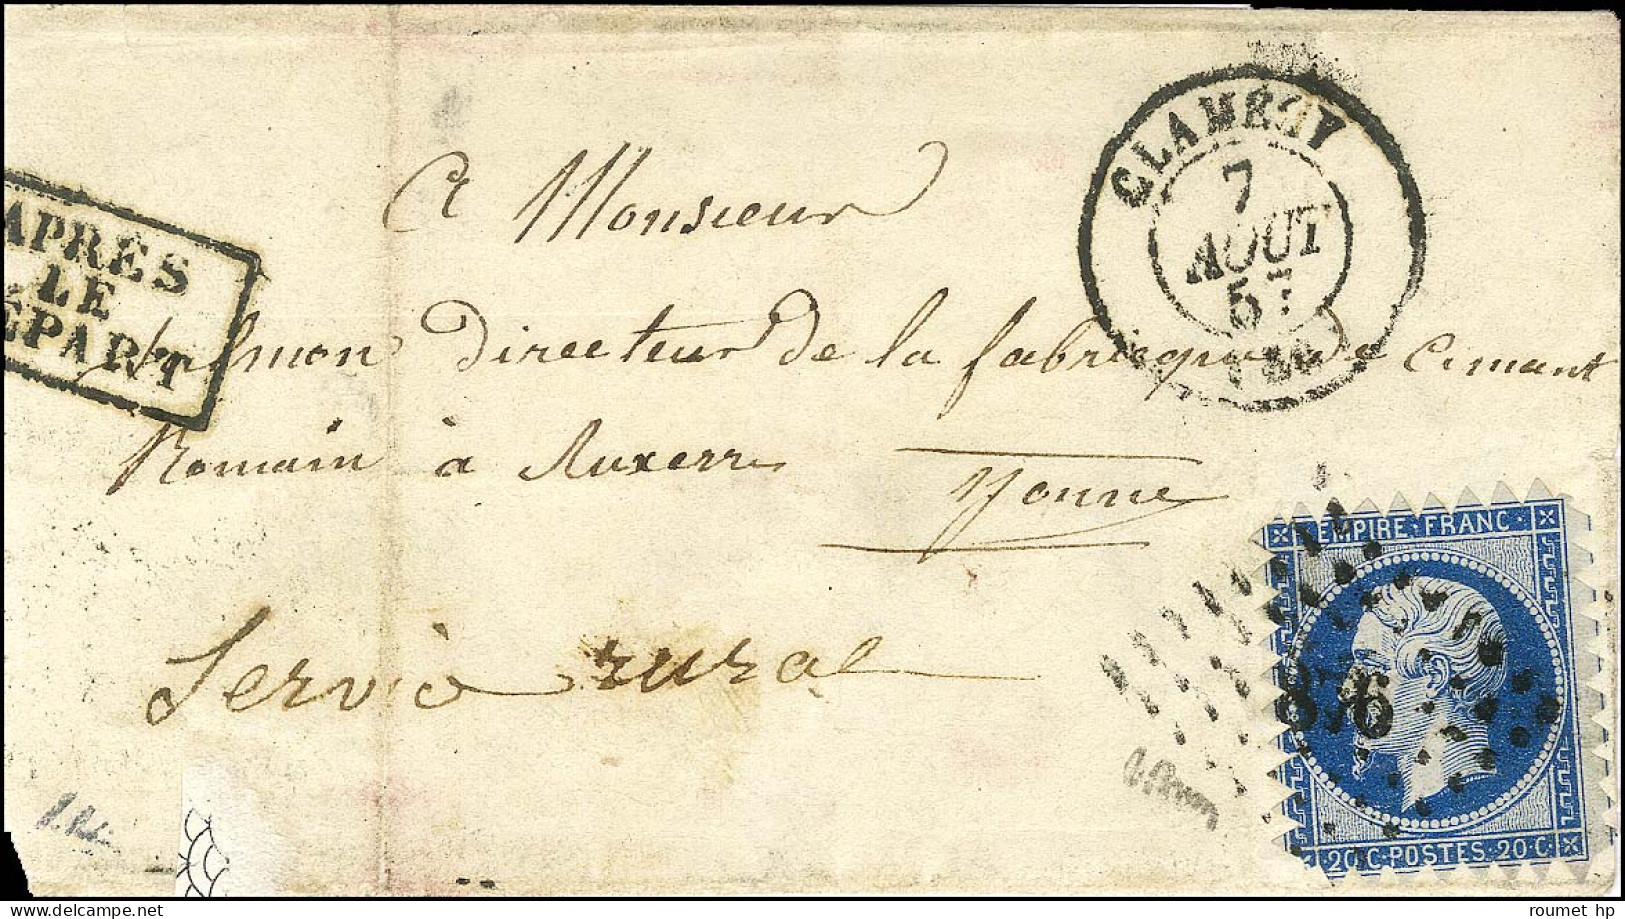 CLAMECY
7
AOUT
57
APRES
LE
EPART
A Monsieur
Salmon Directeur de la fabrique de Cimant
Romain à Auxerre
Yonne
Servic rural
EMPIRE·FRANC·
876
20·C·POSTES·20·C·
roumet hp